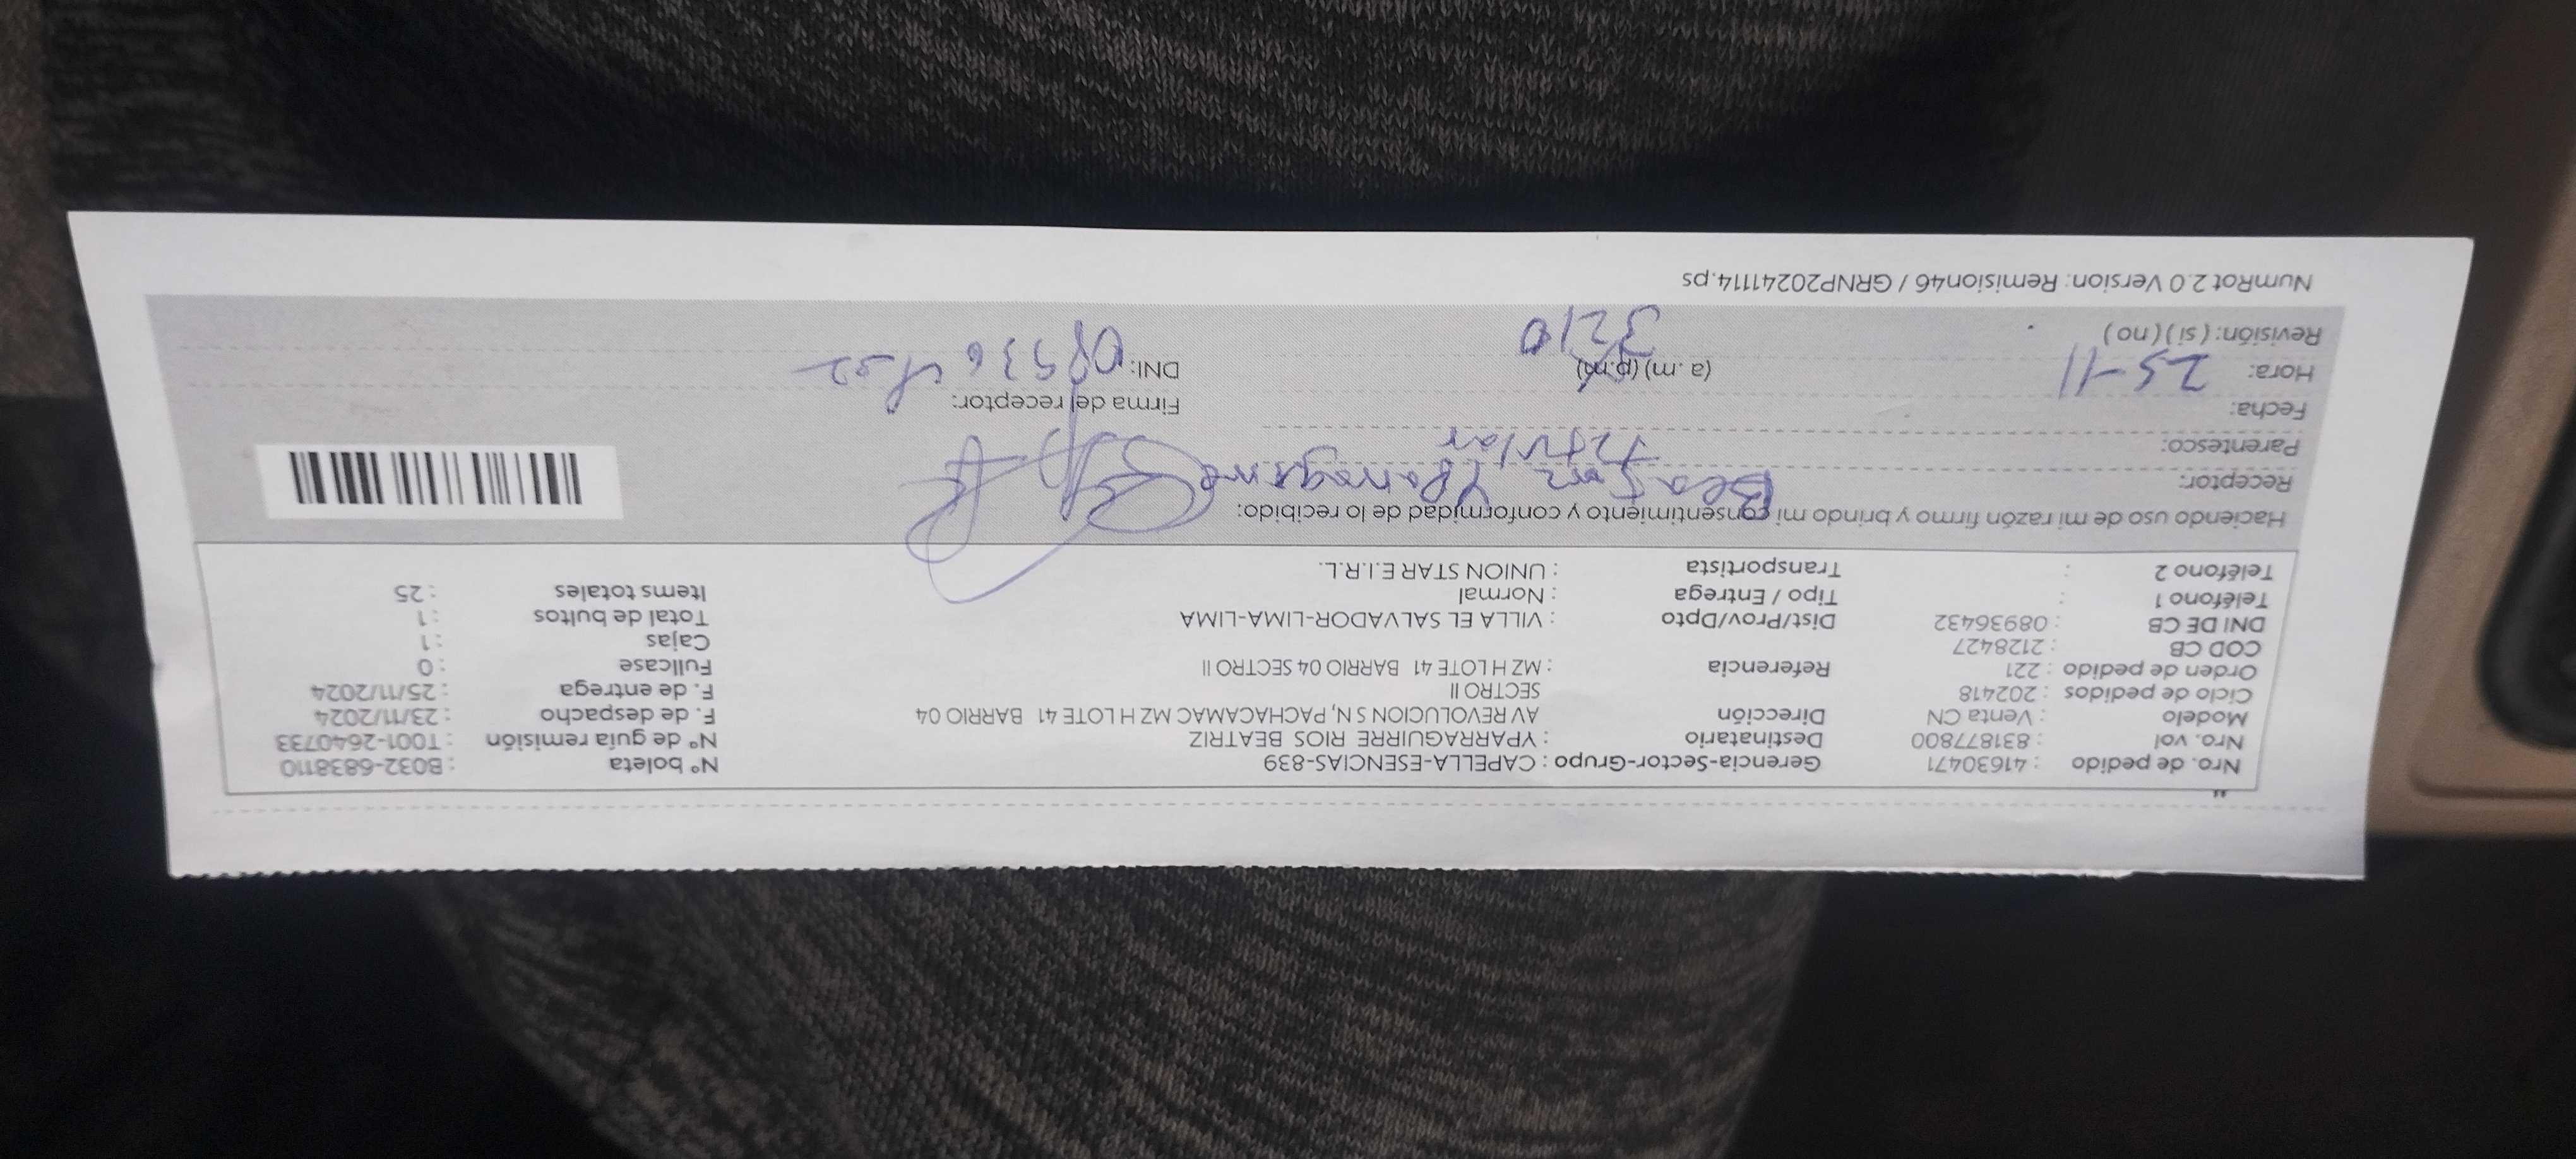 Nro. de pedido : 41630471 Gerencia-Sector-Grupo : CAPELLA-ESENCIAS-839 N° boleta : B032-6838110
Nro. vol : 831877800 Destinatario : YPARRAGUIRRE RIOS BEATRIZ N° de guía remisión : T001-2640733
Modelo : Venta CN Dirección AV REVOLUCION S N, PACHACAMAC MZ H LOTE 41 BARRIO 04 F. de despacho : 23/11/2024
Ciclo de pedidos : 202418 SECTRO II F. de entrega : 25/11/2024
Orden de pedido : 221 Referencia : MZ H LOTE 41 BARRIO 04 SECTRO II Fullcase : 0
COD CB : 2128427 Cajas : 1
DNI DE CB : 08936432 Dist/Prov/Dpto : VILLA EL SALVADOR-LIMA-LIMA Total de bultos : 1
Teléfono 1 : Tipo / Entrega : Normal Items totales : 25
Teléfono 2 : Transportista : UNION STAR E.I.R.L.
Haciendo uso de mi razón firmo y brindo mi consentimiento y conformidad de lo recibido:
Receptor:
Parentesco: titular
Fecha: Firma del receptor:
Hora: 25-11 (a.m) (p.m) DNI:
Revisión: ( si ) ( no )
NumRot 2.0 Version: Remision46 / GRNP20241114.ps